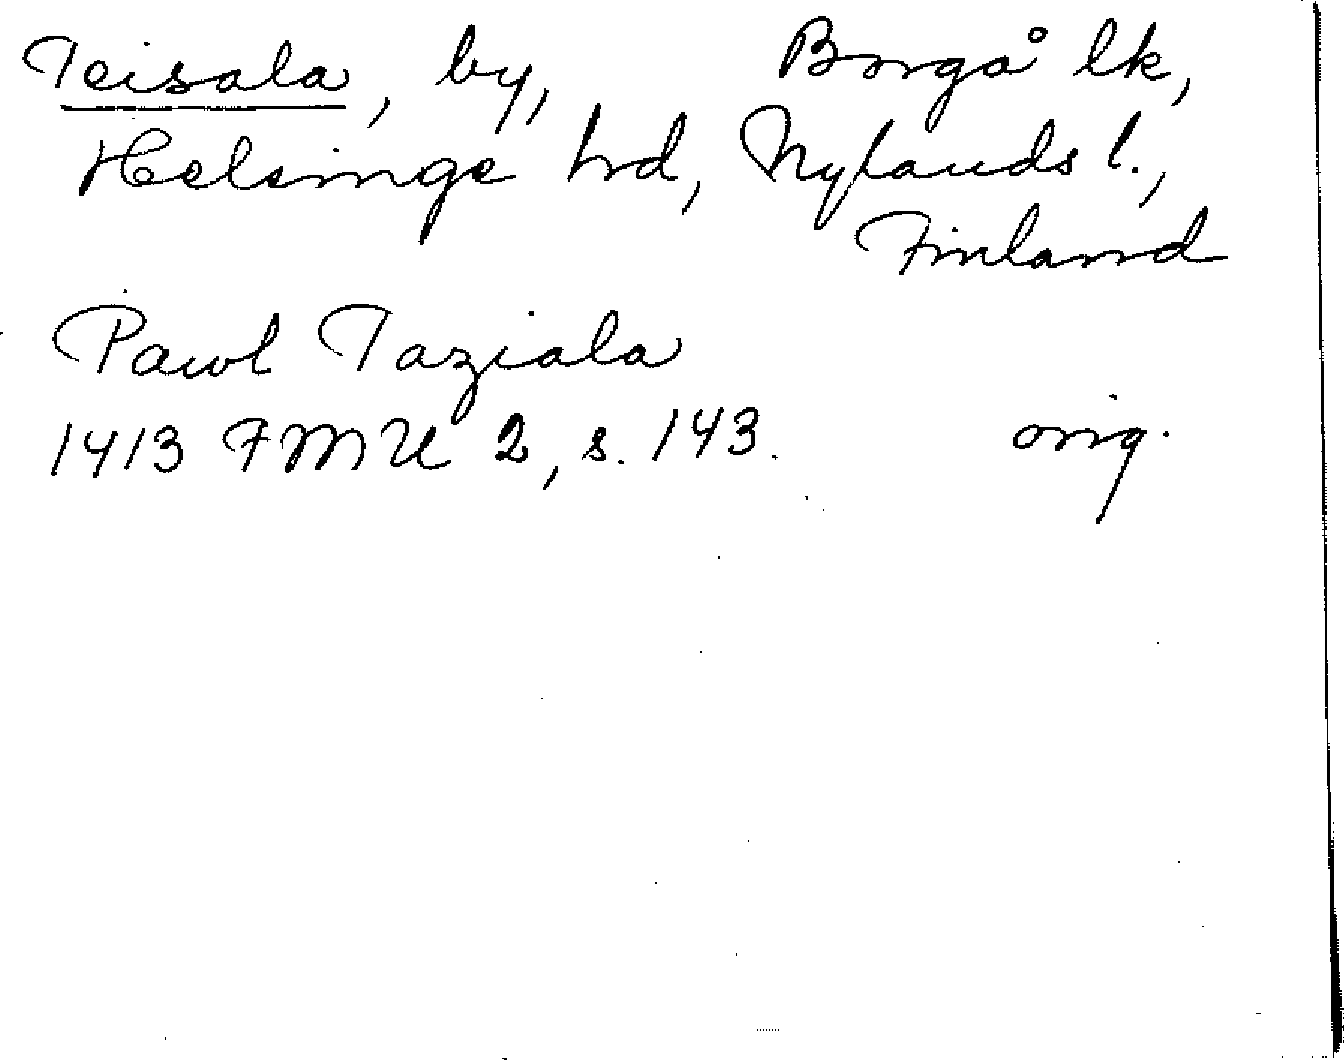 Teisala, by, Borgå lk,
Helsinge hd, Nylands l.,
Finland
Pawl Taziala
1413 FMU 2, s. 143. orig.